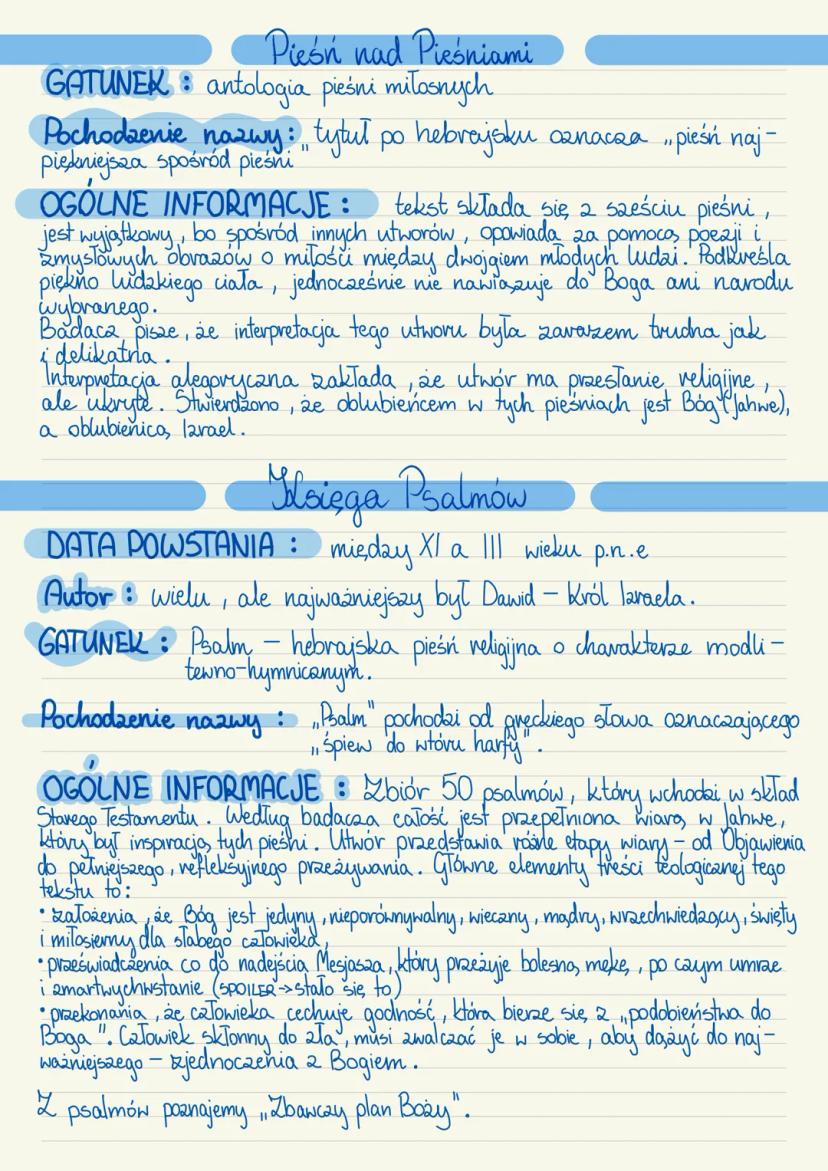 Pieśń nad Pieśniami
GATUNEK : antologia pieśni miłosnych
Pochodzenie nazwy: tytuł po hebrajsku oznacza „pieśń naj-
piękniejsza spośród pieśni"
OGÓLNE INFORMACJE : tekst składa się z sześciu pieśni ,
jest wyjątkowy , bo spośród innych utworów , opowiada za pomocą poezji i
zmysłowych obrazów o miłości między dwojgiem młodych ludzi . Podkreśla
piękno ludzkiego ciała , jednocześnie nie nawiązuje do Boga ani narodu
wybranego .
Badacz pisze, że interpretacja tego utworu była zarazem trudna jak
i delikatna .
Interpretacja alegoryczna zakłada , że utwór ma przesłanie religijne ,
ale ukryte . Stwierdzono , że oblubieńcem w tych pieśniach jest Bóg (Jahwe),
a oblubienicą Izrael .
Księga Psalmów
DATA POWSTANIA : między XI a III wieku p.n.e
Autor : wielu , ale najważniejszy był Dawid – Król Izraela .
GATUNEK : Psalm – hebrajska pieśń religijna o charakterze modli-
tewno-hymnicznym.
Pochodzenie nazwy : „Psalm" pochodzi od greckiego słowa oznaczającego
„śpiew do wtóru harfy" .
OGÓLNE INFORMACJE : Zbiór 50 psalmów, który wchodzi w skład
Starego Testamentu . Według badacza całość jest przepełniona wiarą w Jahwe,
który był inspiracją tych pieśni . Utwór przedstawia różne etapy wiary – od Objawienia
do pełniejszego , refleksyjnego przeżywania . Główne elementy treści teologicznej tego
tekstu to :
• założenia , że Bóg jest jedyny , nieporównywalny, wieczny , mądry, wrzechwiedzący , święty
i miłosierny dla słabego człowieka,
• przeświadczenia co do nadejścia Mesjasza , który przeżyje bolesną mękę , po czym umrze
i zmartwychwstanie (SPOILER -> stało się to)
• przekonania , że człowieka cechuje godność , która bierze się z „podobieństwa do
Boga ". Człowiek skłonny do zła , musi zwalczać je w sobie , aby dążyć do naj-
ważniejszego – zjednoczenia z Bogiem .
Z psalmów poznajemy „Zbawczy plan Boży" .